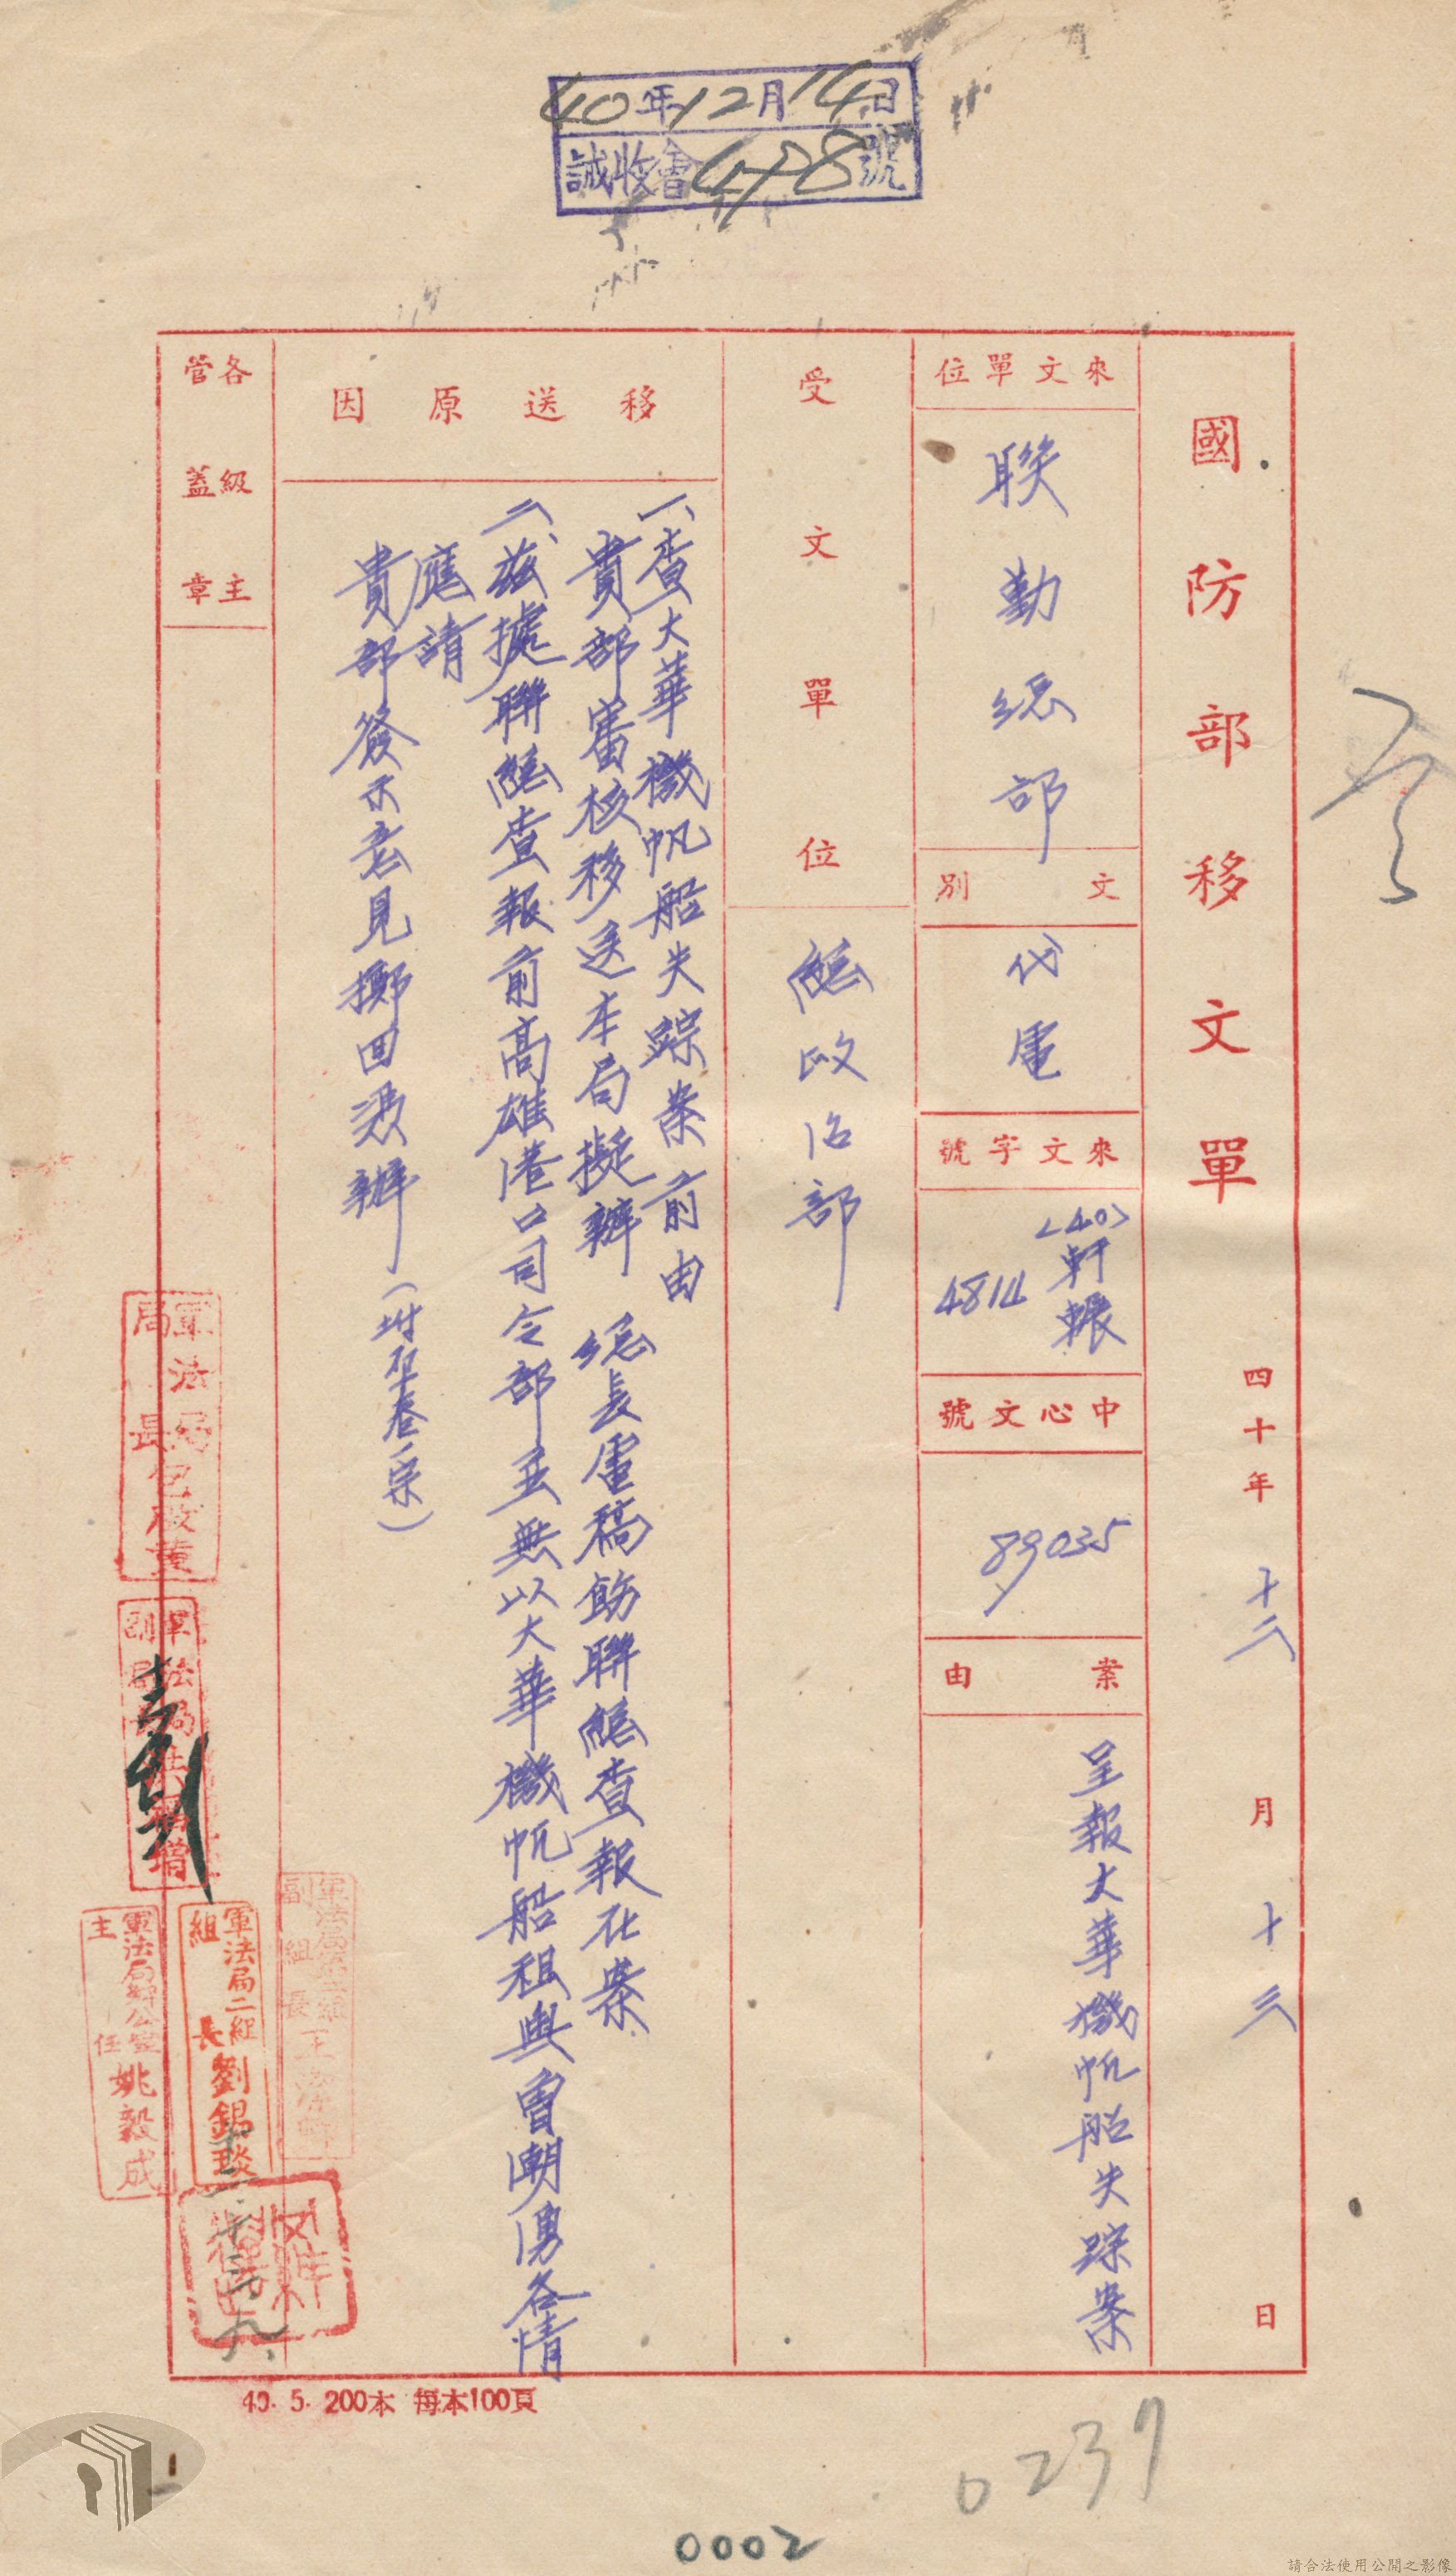 40年12月14日
誠收會498號
國防部移文單
四十年十二月十三日
來文單位
聯勤總部
文別
代電
來文字號
<40>軒輾
4814
中心文號
89035
案由
呈報大華機帆船失踪案
受文單位
總政治部
移送原因
一、查大華機帆船失踪案前由
貴部審核移送本局擬辦 總長電稿飭聯總查報在案
二、茲據聯總查報前高雄港口司令部並無以大華機帆船租與曾朝湧各情
應請
貴部簽示意見擲回憑辦(附 卷 宗)
各級主
管蓋章
軍法局
局長包啟黃
軍法局
副局長
軍法局二組
組長劉錫琰
軍法局辦公室
主任姚毅成
副組長王
十二、十三、九、
40. 5. 200本 每本100頁
0237
0002
請合法使用公開之影像